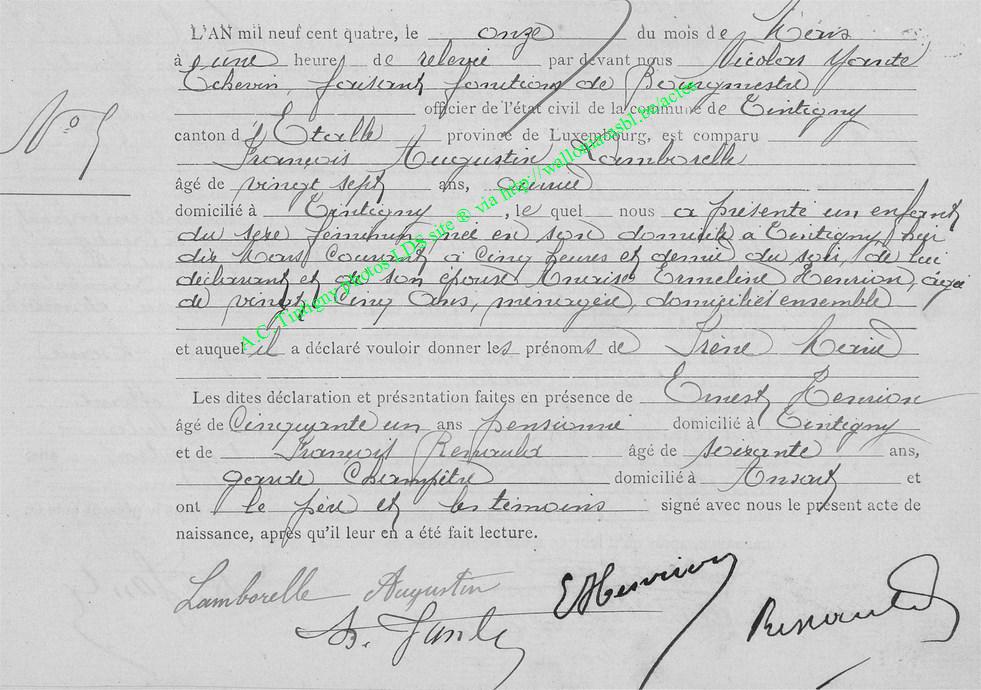 L'AN mil neuf cent quatre, le onze du mois de Mars
à une heure de relevée par devant nous Nicolas
Echevin, faisant fonctions de Bourgmestre
officier de l'état civil de la commune de Tintigny
canton d'Etalle province de Luxembourg, est comparu
François Augustin Lamborelle
âgé de vingt sept ans,
domicilié à Tintigny, le quel nous a présenté un enfant
du sexe féminin, née en son domicile à Tintigny, hier
dix Mars courant, à cinq heures et demie du soir, de lui
déclarant et de son épouse Ermeline Henrion, âgée
de vingt cinq ans, ménagère, domiciliés ensemble
et auquel il a déclaré vouloir donner les prénoms de Irène Marie
Les dites déclaration et présentation faites en présence de Ernest Henrion
âgé de Cinquante un ans pensionné domicilié à Tintigny
et de François Renauld âgé de soixante ans,
garde Champêtre domicilié à Ansart et
ont le père et les témoins signé avec nous le présent acte de
naissance, après qu'il leur en a été fait lecture.
N° 5
A.C. Tintigny photos LDS site ® via http://wallonia-asbl.be/actes
Lamborelle Augustin
E Henrion
Renauld